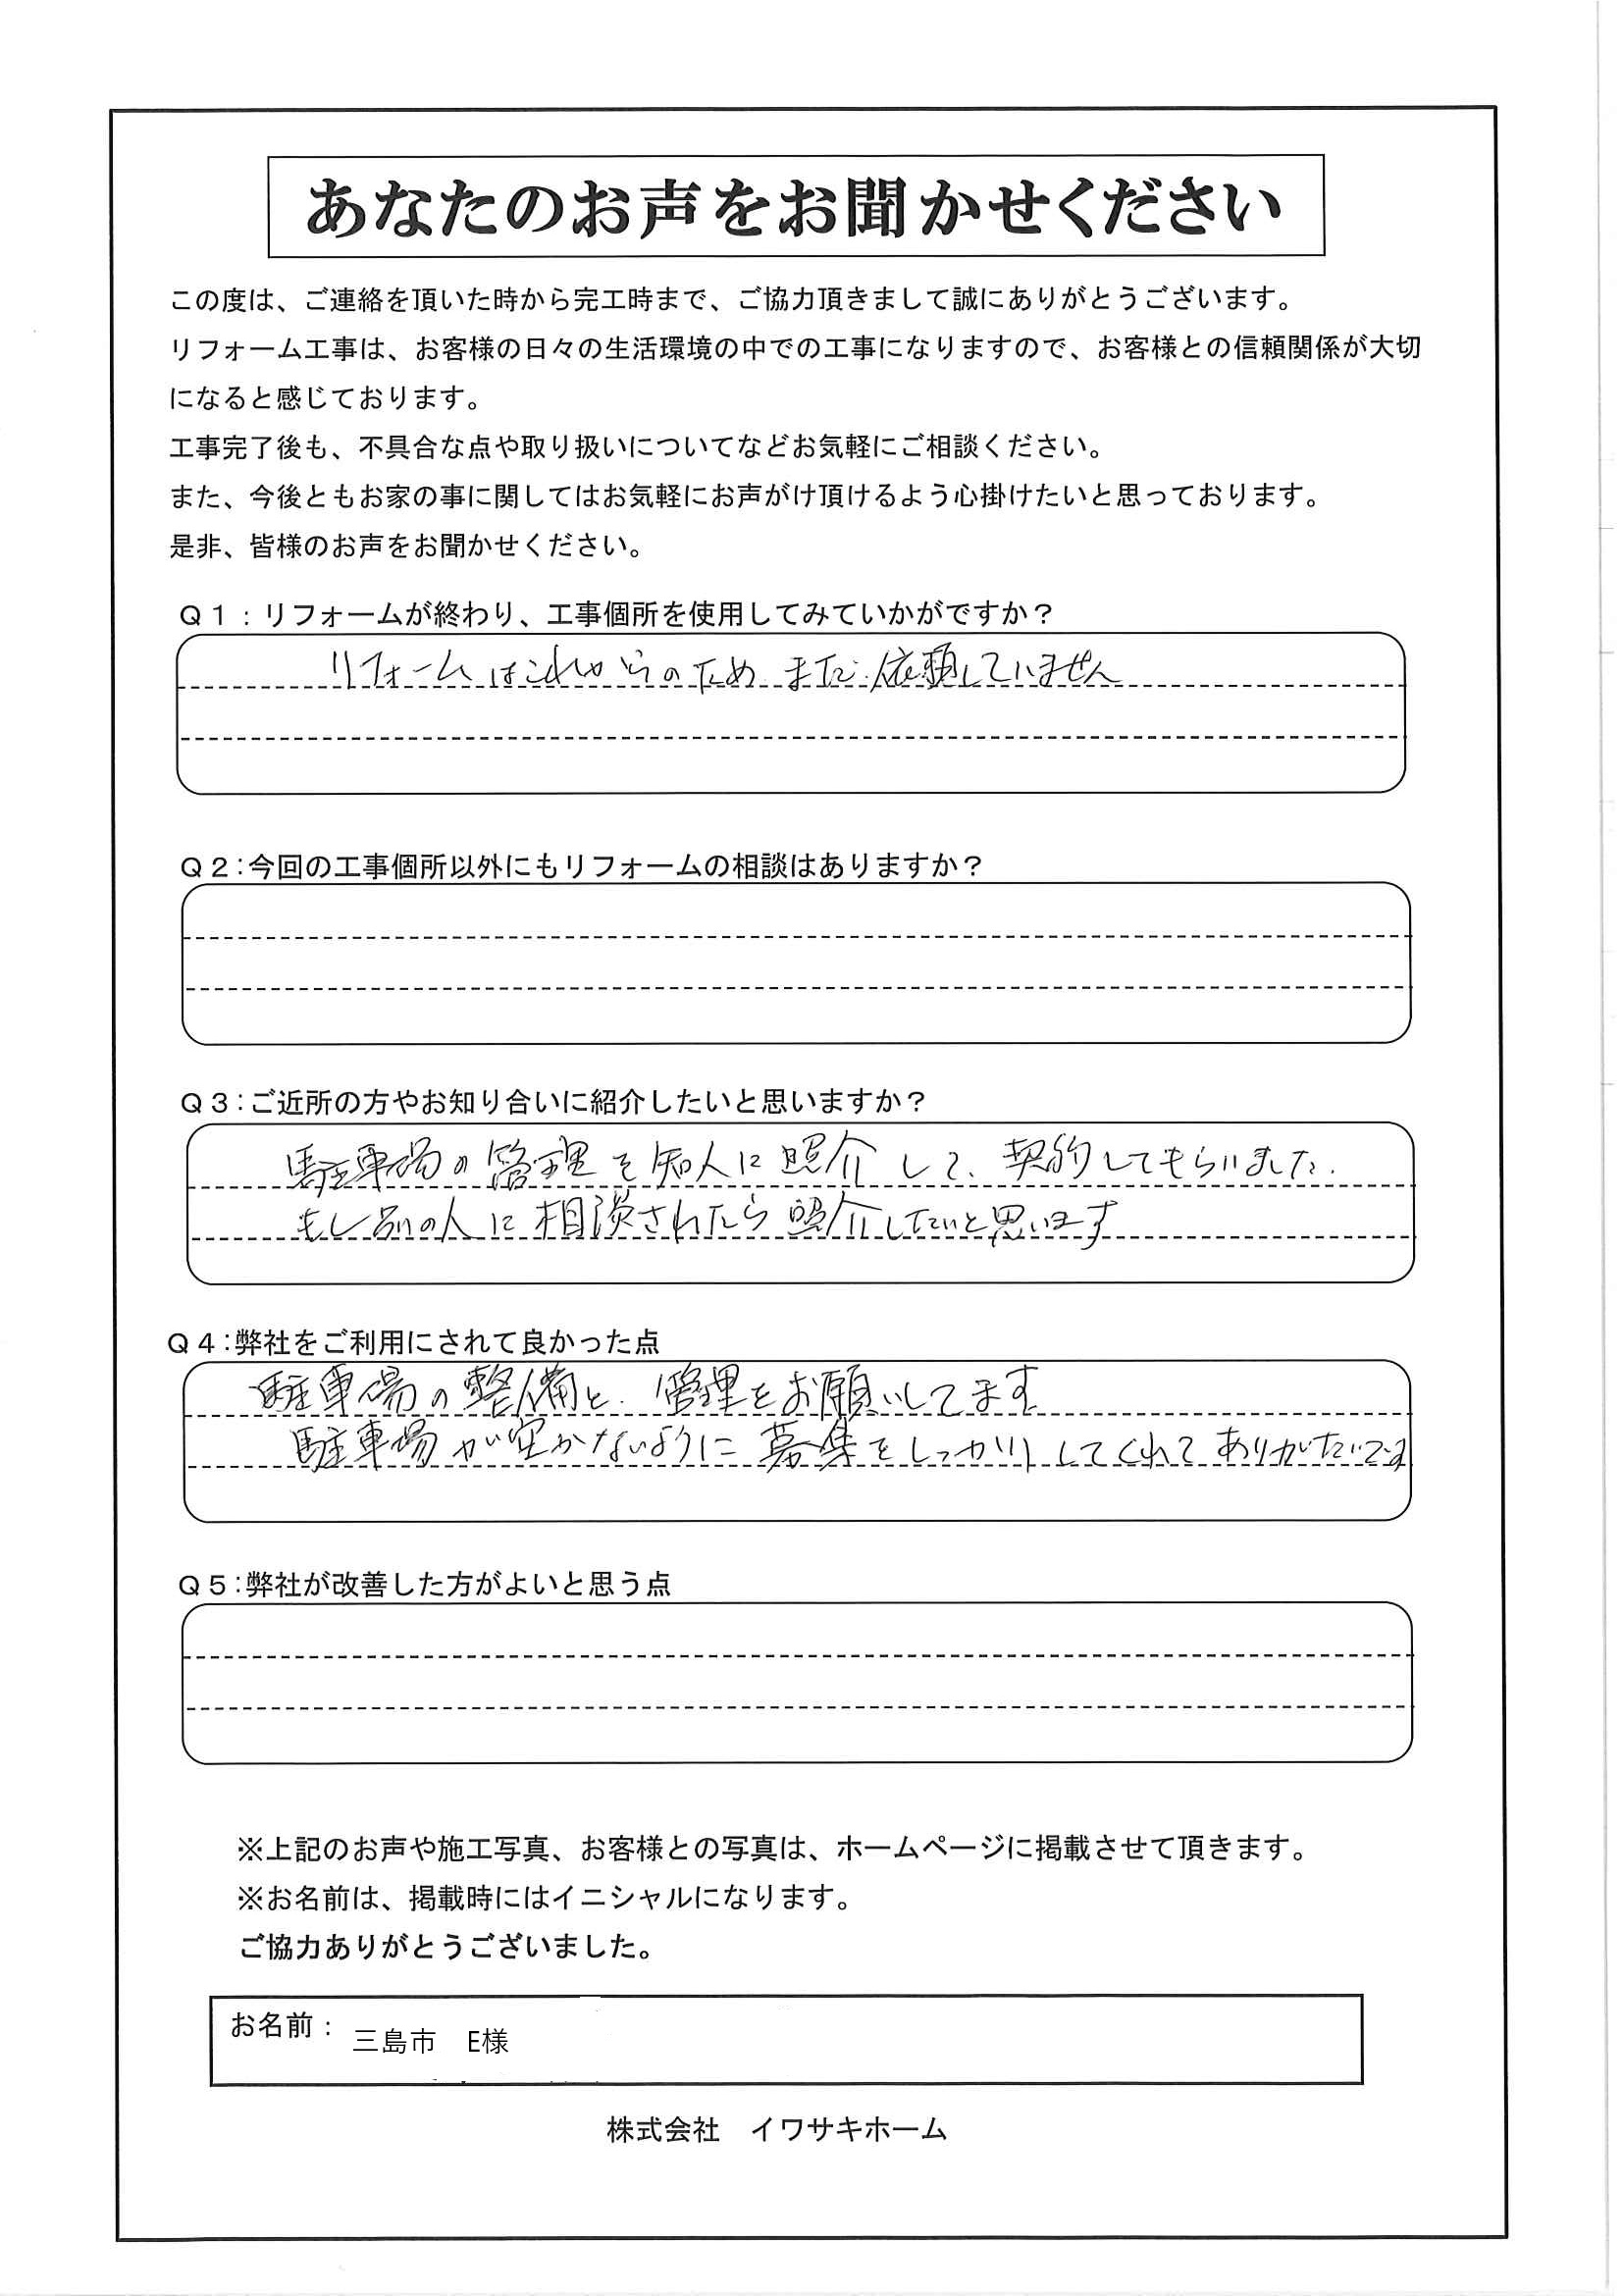 あなたのお声をお聞かせください
この度は、ご連絡を頂いた時から完工時まで、ご協力頂きまして誠にありがとうございます。
リフォーム工事は、お客様の日々の生活環境の中での工事になりますので、お客様との信頼関係が大切
になると感じております。
工事完了後も、不具合な点や取り扱いについてなどお気軽にご相談ください。
また、今後ともお家の事に関してはお気軽にお声がけ頂けるよう心掛けたいと思っております。
是非、皆様のお声をお聞かせください。
Q1：リフォームが終わり、工事個所を使用してみていかがですか？
リフォームはこれからのため まだ依頼していません
Q2：今回の工事個所以外にもリフォームの相談はありますか？
Q3：ご近所の方やお知り合いに紹介したいと思いますか？
駐車場の管理を知人に照介して、契約してもらいました．
もし別の人に相談されたら照介したいと思います
Q4：弊社をご利用にされて良かった点
駐車場の整備と、管理をお願いしてます
駐車場が空かないように募集をしっかりしてくれてありがたいです
Q5：弊社が改善した方がよいと思う点
※上記のお声や施工写真、お客様との写真は、ホームページに掲載させて頂きます。
※お名前は、掲載時にはイニシャルになります。
ご協力ありがとうございました。
お名前： 三島市　E様
株式会社　イワサキホーム